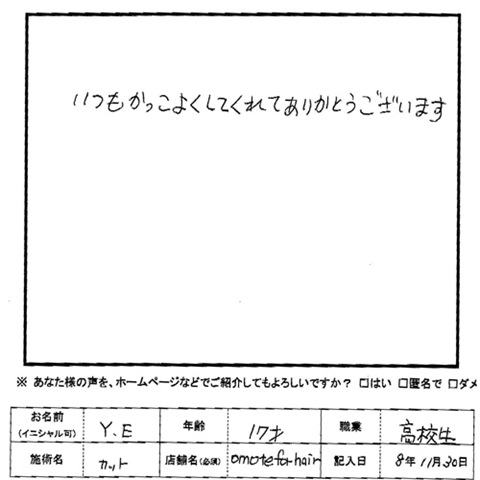 いつもかっこよくしてくれてありがとうございます
※ あなた様の声を、ホームページなどでご紹介してもよろしいですか? □はい □匿名で □ダメ
お名前 (イニシャル可) Y.E 年齢 17才 職業 高校生
施術名 カット 店舗名(必須) omotefor hair 記入日 8年11月30日